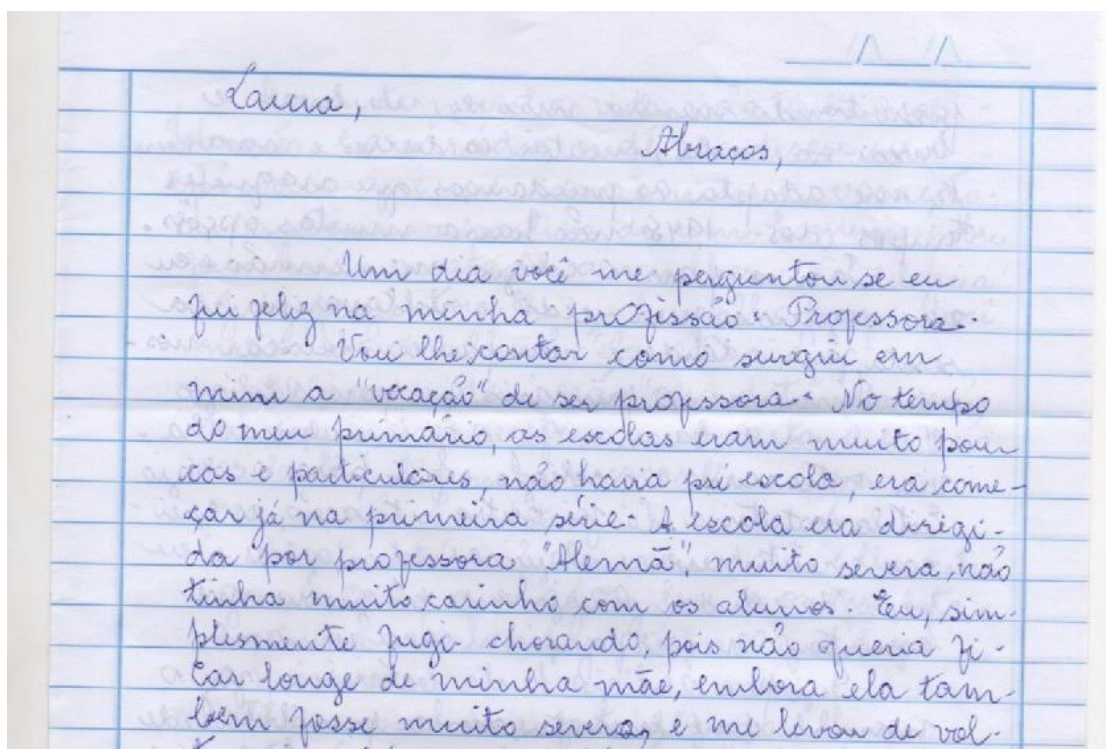 Laura,
Abraços,
Um dia você me perguntou se eu
fui feliz na minha profissão. Professora.
Vou lhe contar como surgiu em
mim a "vocação" de ser professora. No tempo
do meu primário, as escolas eram muito pou-
cas e particulares, não havia pré escola, era come-
çar já na primeira série. A escola era dirigi-
da por professora "Alemã", muito severa, não
tinha muito carinho com os alunos. Eu, sim-
plesmente fugi chorando, pois não queria fi-
car longe de minha mãe, embora ela tam-
bém fosse muito severa, e me levou de vol-